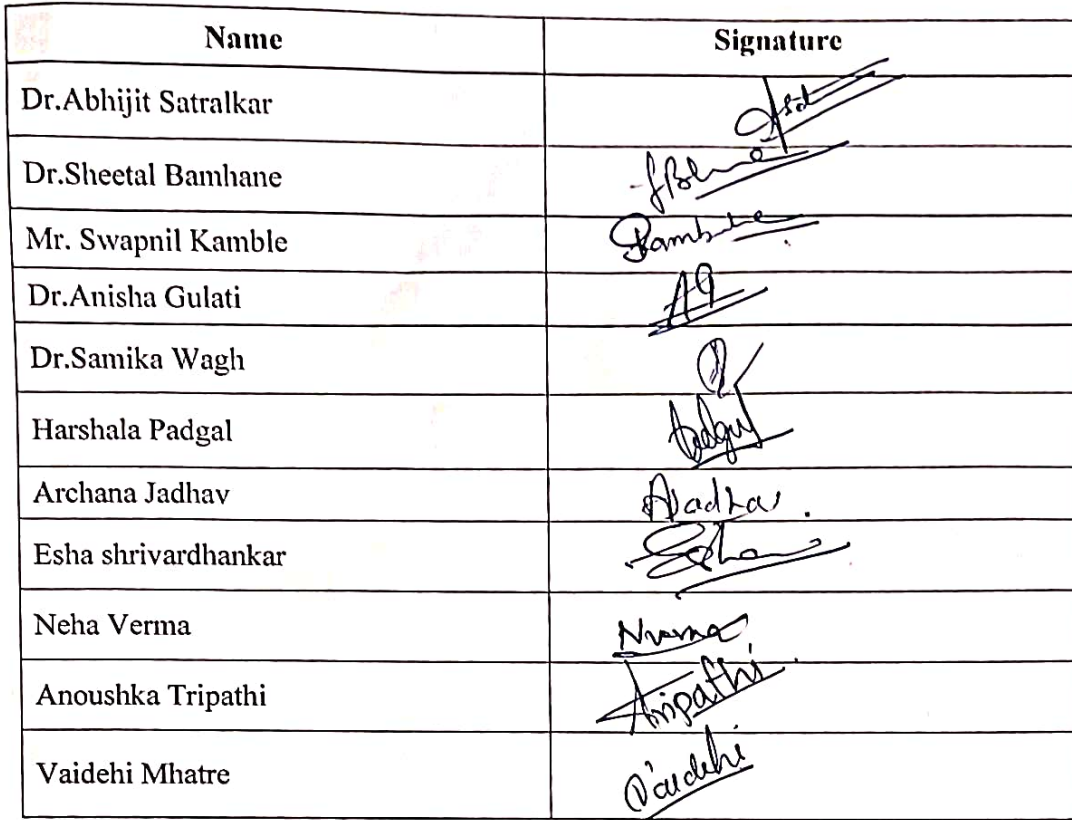 Name Signature
Dr.Abhijit Satralkar
Dr.Sheetal Bamhane
Mr. Swapnil Kamble
Dr.Anisha Gulati AG
Dr.Samika Wagh
Harshala Padgal
Archana Jadhav
Esha shrivardhankar
Neha Verma
Anoushka Tripathi
Vaidehi Mhatre Vaidehi